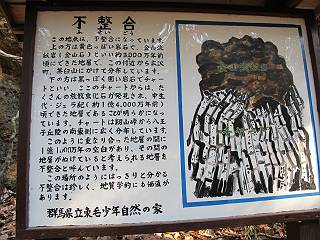 不整合
ふせいごう
この地点は、不整合になっています。
上の方は黄色っぽい岩石で、金山溶
結岩(金山石)といい約3,000万年前
頃にできた地層で、この付近から広沢
町、茶臼山にかけて分布しています。
下の方は黒っぽく固い岩石でチャー
トといい、ここのチャートからは、た
くさんの放散虫化石が発見され、中生
代・ジュラ紀(約1億4,000万年前)
でできた地層であることが明らかになっ
ています。チャートは
丘陵の南東側に広く分布しています。
このように重なり合った地層の間に
1億1,400万年の空白があり、その間の
地層がぬけていると考えられる地層を
不整合と呼んでいます。
この場所のようにはっきりと分かる
不整合は珍しく、地質学的にも価値が
あります。
群馬県立東毛少年自然の家